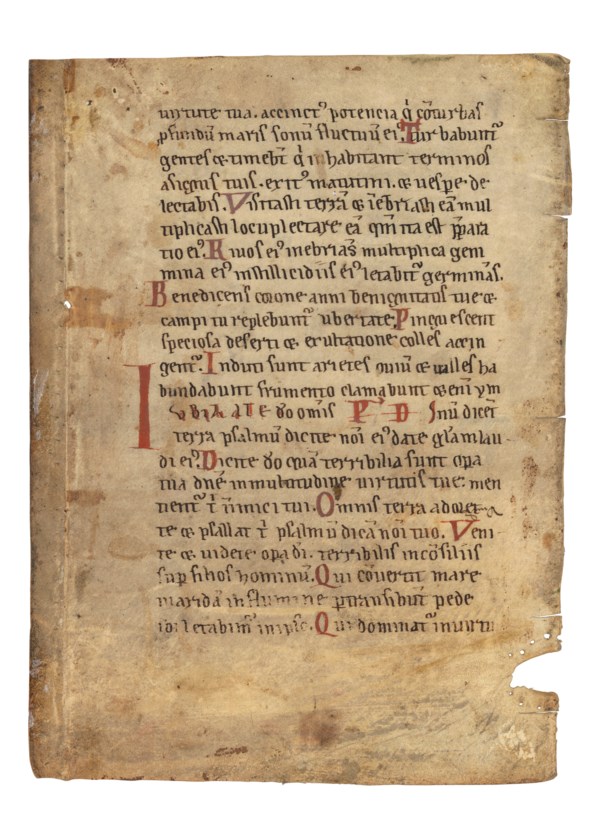 uirtute tua. accinctꝰ potencia q̇ cōturbas
ꝓfundū maris sonū fluctuū eiꝰ. Turbabuntᷣ
gentes ⁊ timebt̄ q̇ inhabitant terminos
asignis tuis. exitꝰ matutini. ⁊ uespe. de-
lectabis. Visitasti terrā ⁊ īebriasti eā mul
tiplicasti locuplectare eā qm̄ ita est p̄para
tio eiꝰ. Riuos eiꝰ inebrians multiplica gem
mina eiꝰ instillicidiis eiꝰ letabitᷣ germinās.
Benedicens corone anni benignitatis tue ⁊
campi tu replebuntᷣ ubertate. Pinguescent
speciosa deserti ⁊ exultatione colles accin
gentᷣ. Induti sunt arietes ouiū ⁊ ualles ha
bundabunt frumento clamabunt ⁊enī ym
IVBILATE do om̄is Inū dicet
terra psalmū dicite noī eiꝰ date gl̄am lau-
di eiꝰ. Dicite do quā terribilia sunt opa
tua dn̄e inmultitudine uirtutis tue. men
tientᷣ t̄ inimici tui. Omnis terra adoret
te ⁊ psallat t̄ psalmū dicā noī tuo. Veni
te ⁊ uidete opa di. terribilis incōsiliis
suꝑ filios hominū. Qui cōuertit mare
inaridā influmine ꝑtransibūt pede
ibi letabimᷣ inipso. Qui dominatᷣ inuirtu